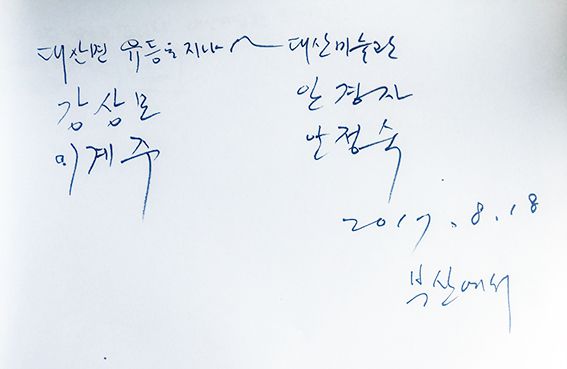 대산면 유등을 지나~ 대산미술관
강상모 안경자
이계주 안정숙
2017.8.18
부산에서